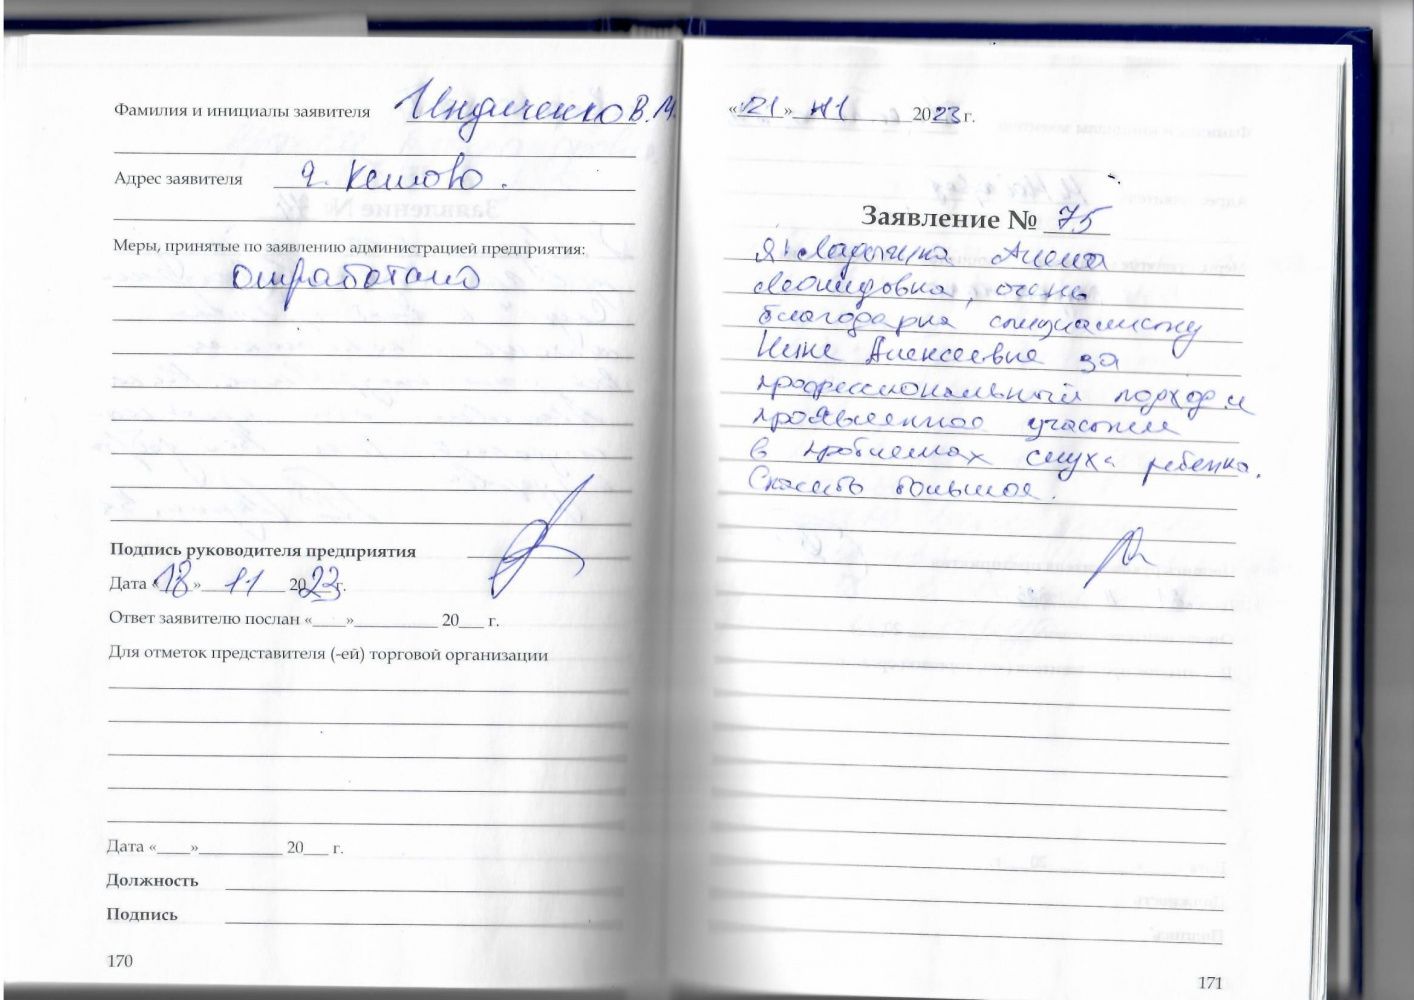 Фамилия и инициалы заявителя Индиченко В. М.
Адрес заявителя д. Кешово.
Меры, принятые по заявлению администрацией предприятия:
отработано
Подпись руководителя предприятия
Дата «18» 11 2023 г.
Ответ заявителю послан «____»__________ 20___ г.
Для отметок представителя (-ей) торговой организации
Дата «____»__________ 20___ г.
Должность
Подпись
170
«21» 11 2023 г.
Заявление № 75
Я, Ладыгина Алена
Леонидовна, очень
благодарна специалисту
Нине Алексеевне за
профессиональный подход и
проявленное участие
в проблемах слуха ребенка.
Спасибо большое.
171